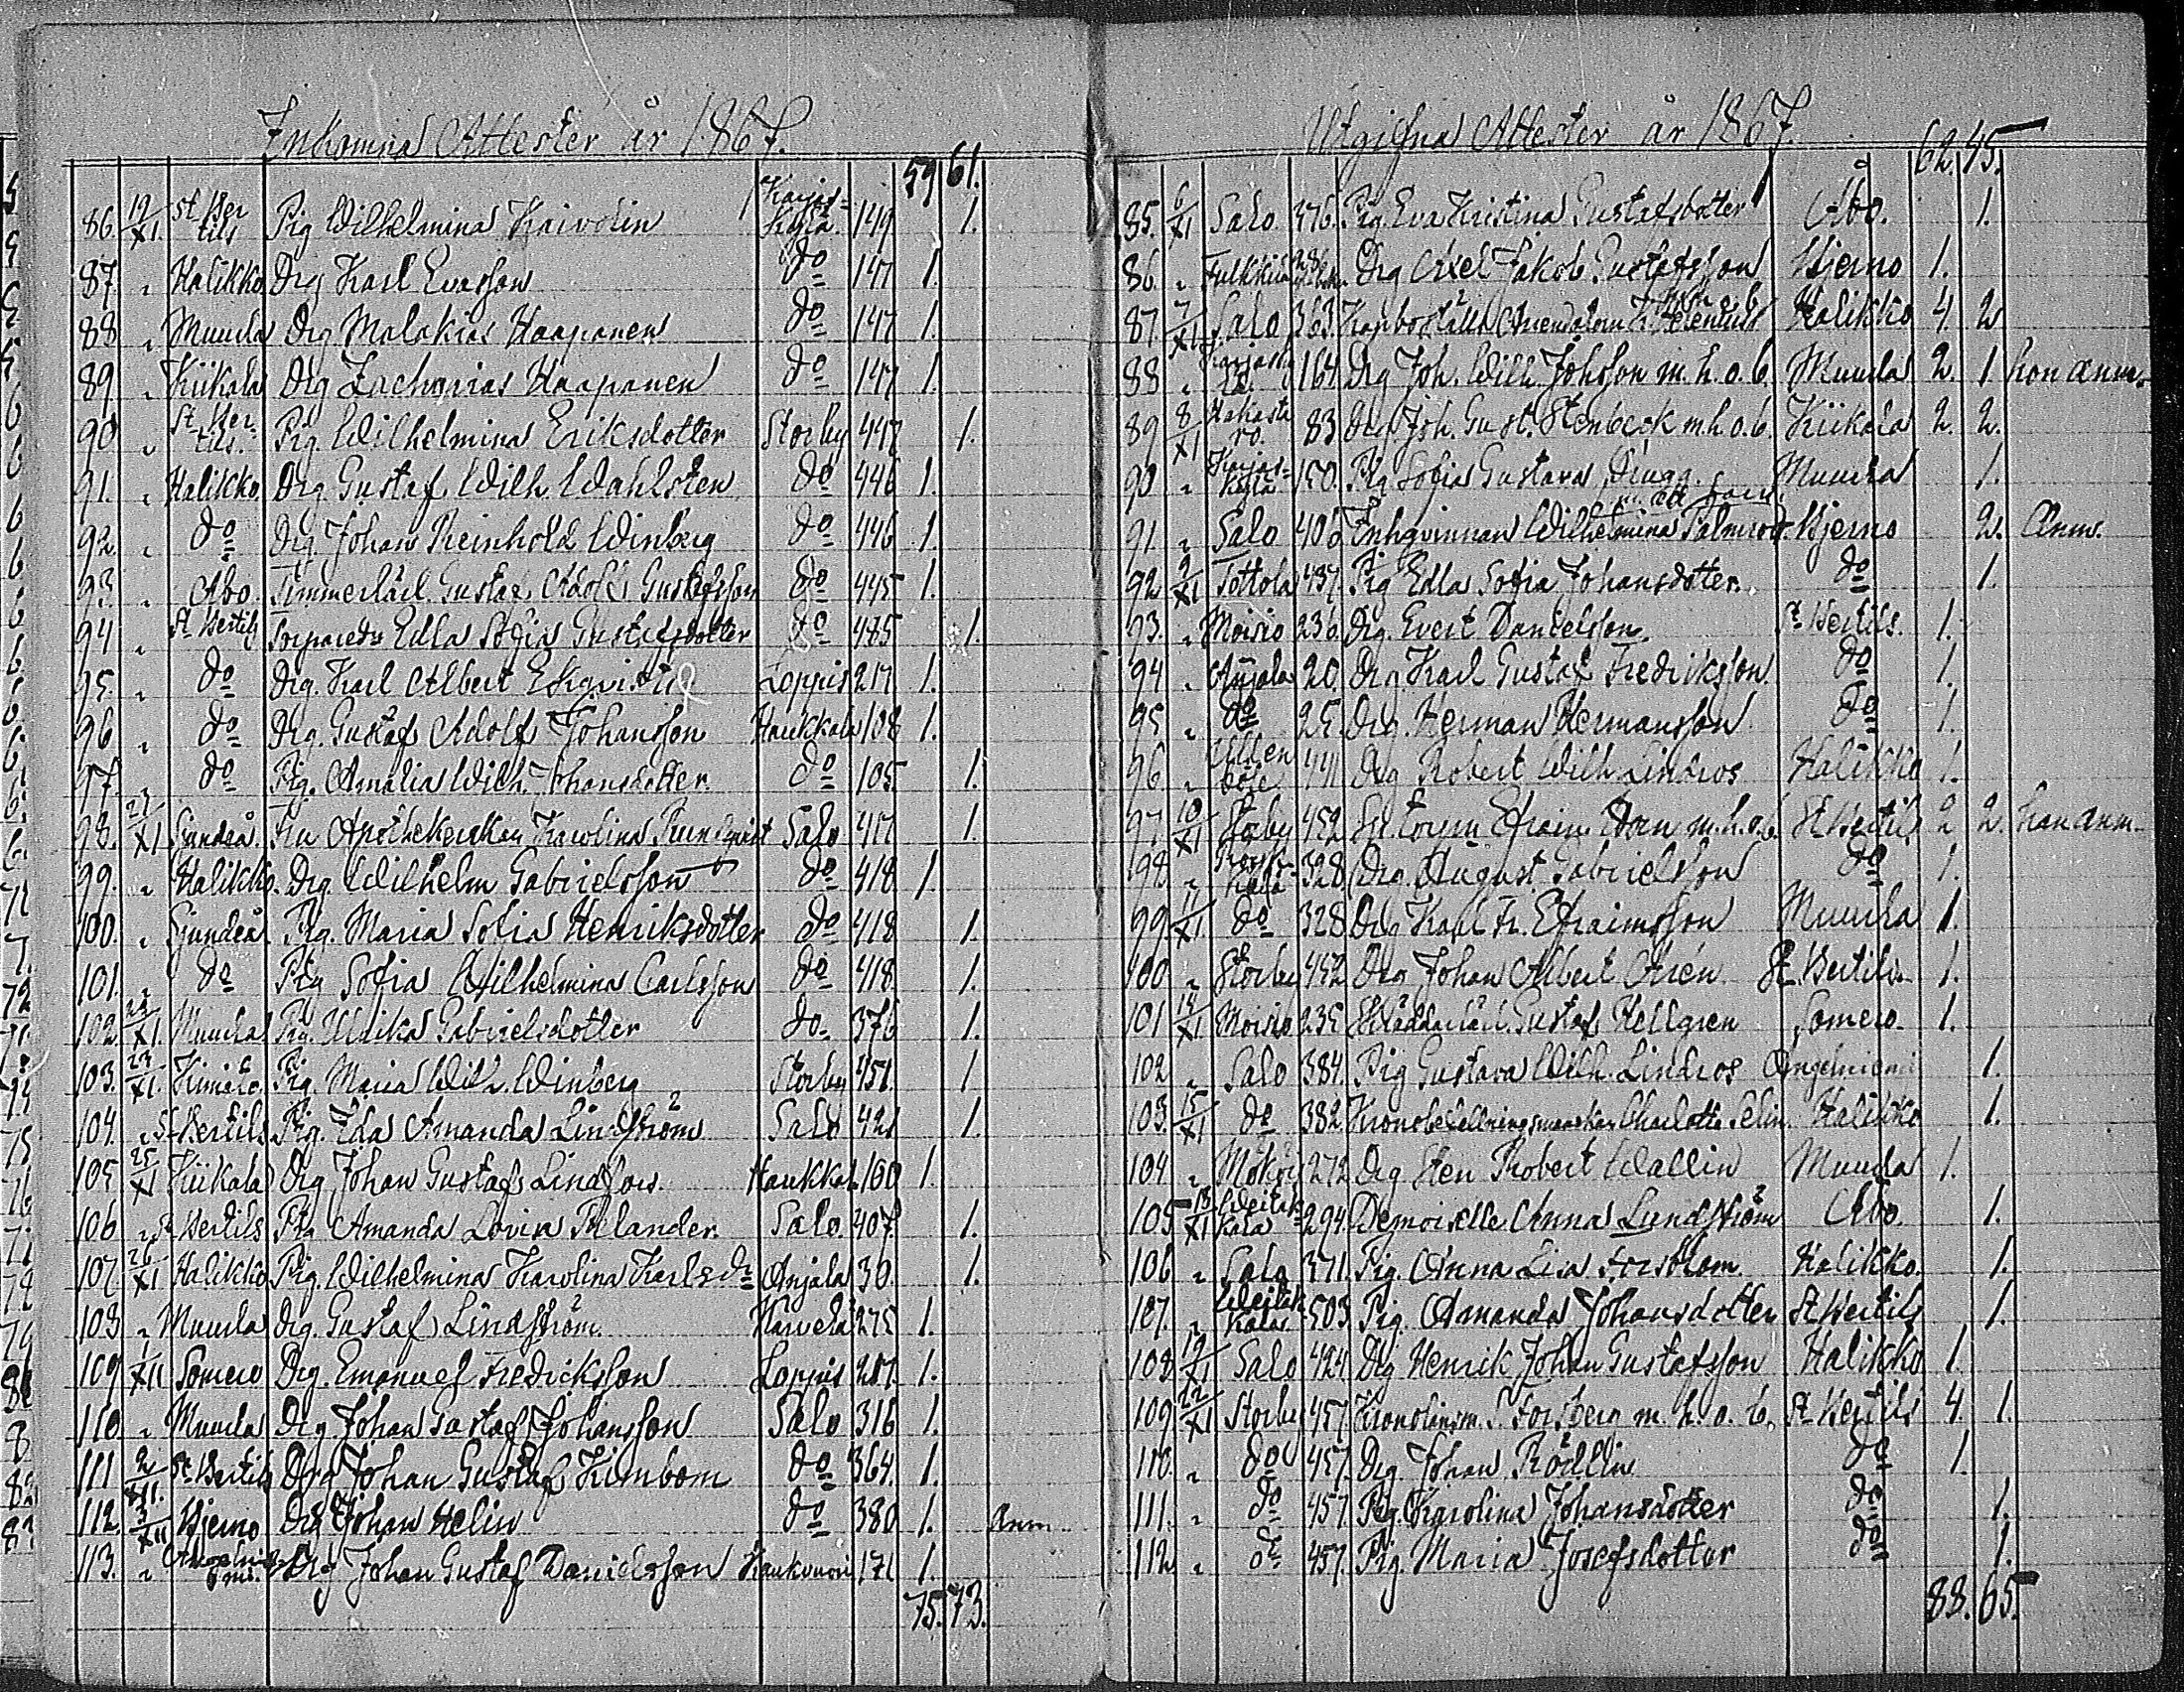 Inkomna Attester år 1867.
59 61.
86. 19/XI. St Bertils Pig Wilhelmina Kaivolin Karjaskylä 149 1.
87. " Halikko Drg Karl Evasson do 147 1.
88. " Muurla Drg Malakias Haapanen do 147 1.
89. " Kiikala Drg Zacharias Haapanen do 147 1.
90. " St Bertils. Pig. Wilhelmina Eriksdotter Storby 447 1.
91. " Halikko Drg. Gustaf Wilh. Wahlsten do 446 1.
92. " do Drg. Johan Reinhold Winberg do 446 1.
93. " Åbo. Timmerlärl. Gustaf Adolf Gustafsson do 445 1.
94 " St Bertils Edla Sofia Gustafsdotter do 475 1.
95. " do Drg. Karl Albert Ekqvist Loppis 217 1.
96 " do Drg. Gustaf Adolf Johansson Haukkala 108 1.
97. " do Pig. Amalia Wilh. Johansdotter. do 105. 1.
98. 21/XI Sjundeå. Fru Apothekerskan Karolina Rundqvist Salo 417 1.
99. " Halikko. Drg. Wilhelm Gabrielsson do 418 1.
100. " Sjundeå Pig. Maria Sofia Henriksdotter do 418 1.
101. " do Pig Sofia Wilhelmina Carlsson do 418 1.
102. 22/XI. Muurla Pig. Ulrika Gabrielsdotter do. 376 1.
103. 23/XI. Kimito. Pig. Maria Wilh. Winberg Storby 451. 1
104. " St Bertils Pig. Ida Amanda Lindström Salo 421 1.
105 25/XI Kiikala Drg Johan Gustaf Lindfors. Haukkal. 100 1.
106 " St Bertils Pig Amanda Lovisa Salo. 407. 1.
107. 26/XI Halikko Pig. Wilhelmina Karolina Karlsdr Anjala 30. 1.
108 " Muurla Drg. Gustaf Lindström. Karvela 275 1.
109 1/XII Somero Drg. Emanuel Fredricksson Loppis 217. 1.
110. " Muurla Drg. Johan Gustaf Johansson Salo 316 1.
111 2/XII. St Bertils Drg Johan Gustaf Kimbom do 364. 1.
112. 3/XII Bjerno Drg Johan Helin do 380 1. Anm.
113. " Drg Johan Gustaf Danielsson Kaukvuori 171 1.
75. 73.
Utgifna Attester år 1867.
62. 45.
85. 6/XI Salo 376. Pig. Eva Kristina Gustafsdotter Åbo. 1.
86. " Fulkkila 286 Drg Axel Jakob Gustafsson Bjerno 1.
87. 7/XI Salo 363. Halikko 4. 2
88 " 164 Drg Joh. Wilh. Johsson m. h. o. b. Muurla 2. 1. hon anm.
89 8/XI Hakastaro. 83 Drg. Joh. Gust. Stenbeck m h. o. b. Kiikala 2. 2.
90 " Karjaskylä 150. Pig Sofia Gustava Muurla 1.
91. " Salo 406 Inhqvinnan Wilhelmina Palmroos Bjerno 2. Anm.
92 9/XI Tottola 437 Pig Edla Sofia Johansdotter. do 1.
93. " Moisio 236. Drg. Evert Danielsson. St Bertils. 1.
94 " Anjala 20. Drg. Karl Gustaf Fredriksson do 1.
95 " do 25. Drg. Herman Hermansson do 1.
96. " 441 Drg Robert Wilh Lindros Halikko 1.
97. 10/XI Storby 452 m. h. o. b. St Bertils 2 2. han anm.
98. " 328. Drg. August Gabrielsson do 1.
99 11/XI. do 328 Drg Karl Fr. Efraimsson Muurla 1.
100 " Storby 452 Drg Johan Albert Arén St Bertils. 1.
101 14/XI Moisio 235 Skräddarlärl. Gustaf Hellgren Somero. 1.
102 " Salo 384. Pig Gustava Wilh. Lindros Angelniemi 1.
103. 15/XI do 382. Charlotta Selin Halikko 1.
104 " 272. Drg Sten Robert Wallin Muurla 1.
105 18/XI 294. Demoiselle Anna Lundström Åbo. 1.
106 " Salo 371. Pig. Anna Lisa Forsblom Halikko. 1.
107. " 503 Pig. Amanda Johansdotter St Bertils 1.
108 19/XI Salo 424 Drg Henrik Johan Gustafsson Halikko 1.
109. 22/XI Storby 457. S. Forsberg m. h. o. b. St Bertils 4. 1.
110. " do 457. Drg. Johan Rödlin do 1.
111. " do 457. Pig. Karolina Johansdotter do 1.
112 " do 457. Pig. Maria Josefsdotter do 1.
83. 65.